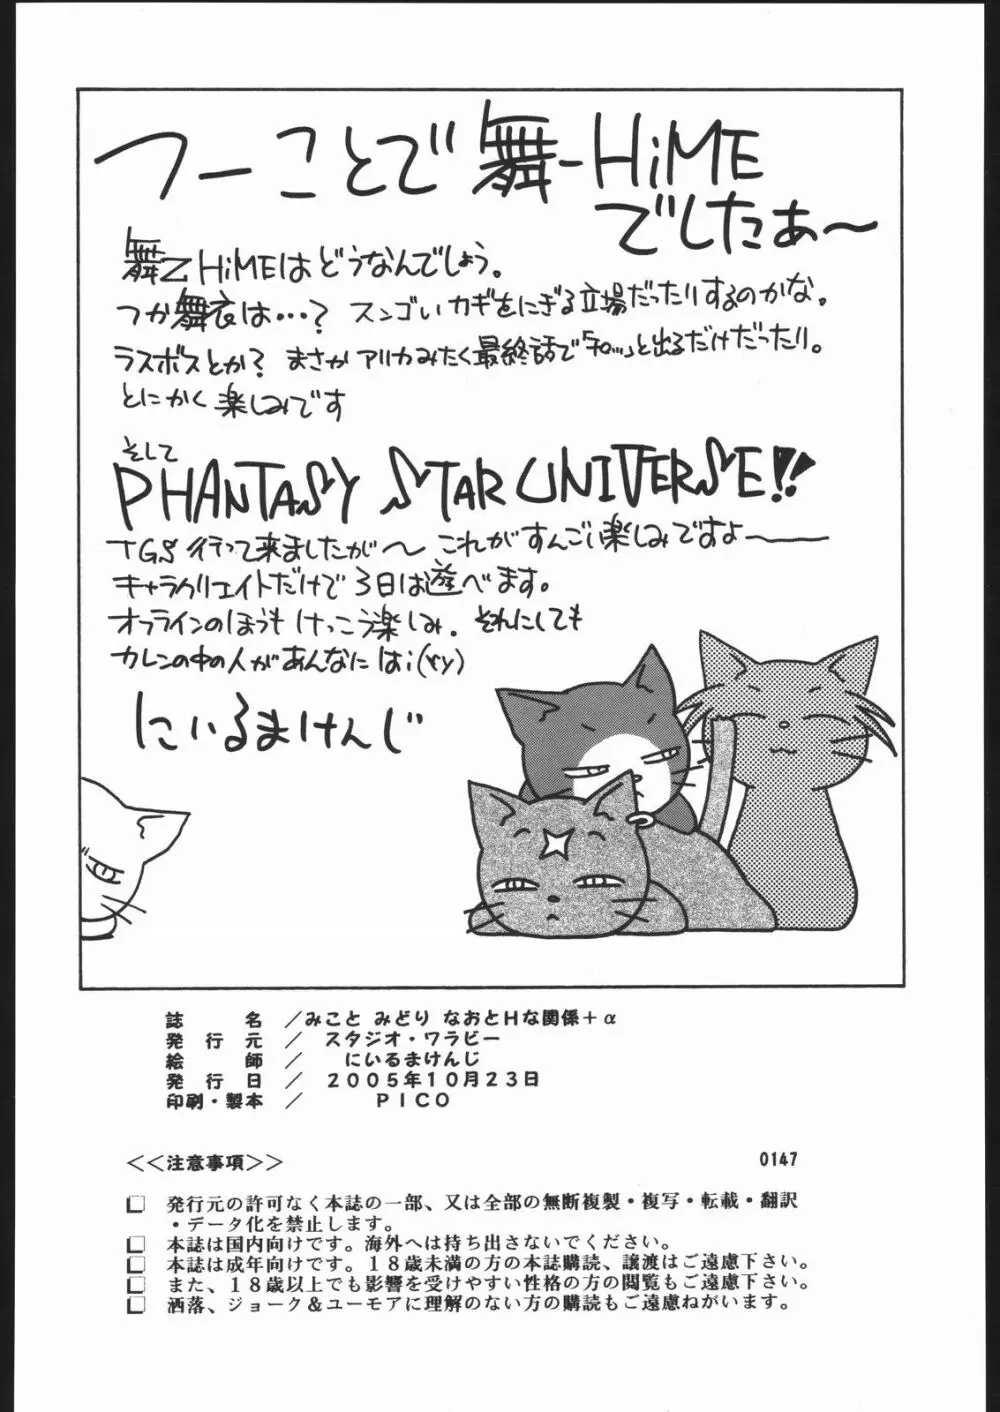 つーことで舞-HiME
でしたぁ〜
舞乙HiMEはどうなんでしょう。
つか舞衣は…？スンゴいカギをにぎる立場だったりするのかな。
ラスボスとか？まさかアリカみたく最終話で「チロッ」と出るだけだったり。
とにかく楽しみです
そして
PHANTASY STAR UNIVERSE!!
TGS行って来ましたが〜これがすんごい楽しみですよ――
キャラクリエイトだけで3日は遊べます。
オフラインのほうもけっこう楽しみ。それにしても
カレンの中の人があんなにはi(ry)
にいるまけんじ
誌　名／みこと みどり なおとHな関係＋α
発行元／スタジオ・ワラビー
絵　師／にいるまけんじ
発行日／２００５年１０月２３日
印刷・製本／ＰＩＣＯ
＜＜注意事項＞＞
0147
□ 発行元の許可なく本誌の一部、又は全部の無断複製・複写・転載・翻訳
・データ化を禁止します。
□ 本誌は国内向けです。海外へは持ち出さないでください。
□ 本誌は成年向けです。１８歳未満の方の本誌購読、譲渡はご遠慮下さい。
□ また、１８歳以上でも影響を受けやすい性格の方の閲覧もご遠慮下さい。
□ 洒落、ジョーク＆ユーモアに理解のない方の購読もご遠慮ねがいます。